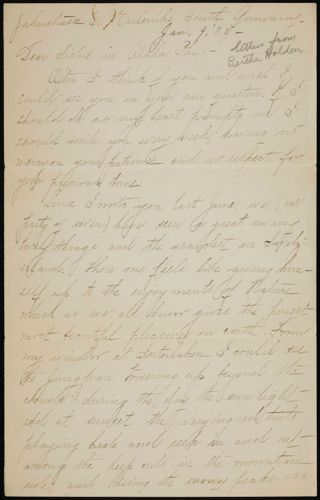 Jahnstrasse Karlsruhe South Germany
Jan. 9. '05 -
letter from
Bertha Holden
Dear Sisters in Alpha Phi: -
Often I think of you and wish I
could see you in your new quarters. If I
should do as my heart prompts me I
should write you every week, having no
mercy on your patience and no respect for
your precious time.
Since I wrote you last June, we (our
party of seven) have seen a great many
lovely things and the grandest in Switz-
erland. There one feels like giving him-
self up to the enjoyments of Nature
which as we all know gives the purest
most beautiful pleasures on earth. From
my window at Interlaken I could see
the Jungfrau towering up beyond the
clouds during the day, the sun light
and at sunset the varying tints
playing hide and seek in and out
among the deep cuts in the mountain
side and kissing the snowy peaks